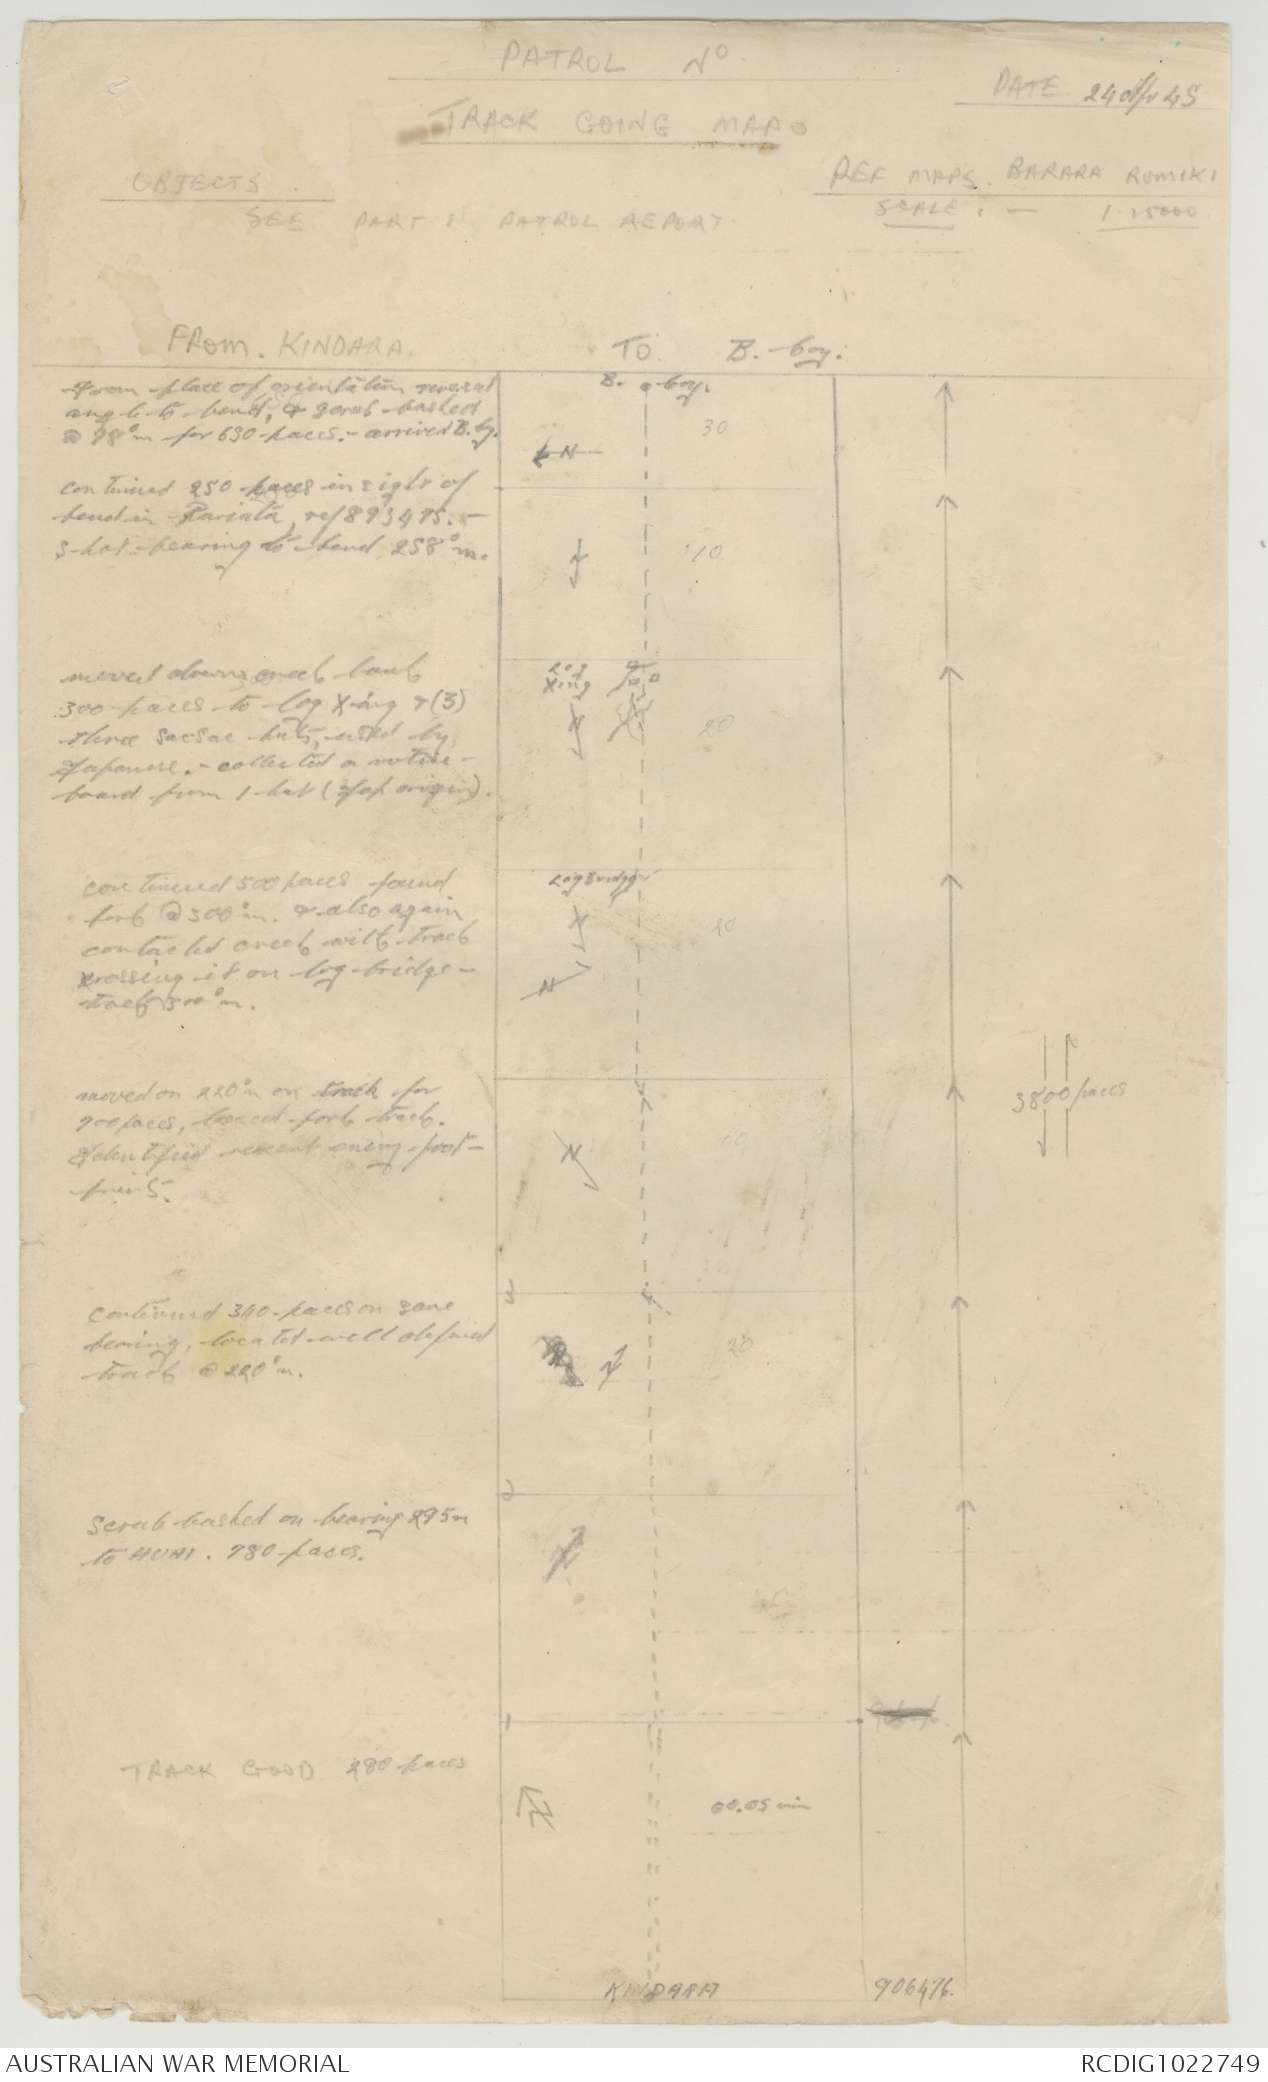 PATROL No.
DATE 24 Apr 45
TRACK GOING MAP
REF MAPS. BARARA RUMIKI
OBJECTS.
SCALE: - 1 25000
SEE PART 1 PATROL REPORT
FROM. KINDARA. TO. B. boy:
B. boy.
From place of orientation reversed
angle to bend, & scrub bashed
@ 78°m for 650 paces. - arrived B. by.
30
N
continued 250 paces in sight of
bend in Pariata, ref 893475. -
shot bearing to bend 258°m.
10
N
moved down creek bank
300 paces to log Xing & (3)
three sacsac huts, used by
Japanese. - collected a notice-
board from 1 hut (Jap origin).
Log
Xing
N
20
continued 500 paces found
fork @ 300°m. & also again
contacted creek with track
crossing it on log bridge -
track 300°m.
Log Bridge
N
20
N
moved on 220°m on track for
900 paces, located fork track.
Identified recent enemy foot-
prints.
N
10
3800 paces
continued 340 paces on same
bearing, located well defined
track @ 220°m.
3
N
20
Scrub bashed on bearing 295m
to HUAI. 780 paces.
2
N
1
TRACK GOOD 280 paces
N
00.05 min
KINDARA 906476.
AUSTRALIAN WAR MEMORIAL RCDIG1022749